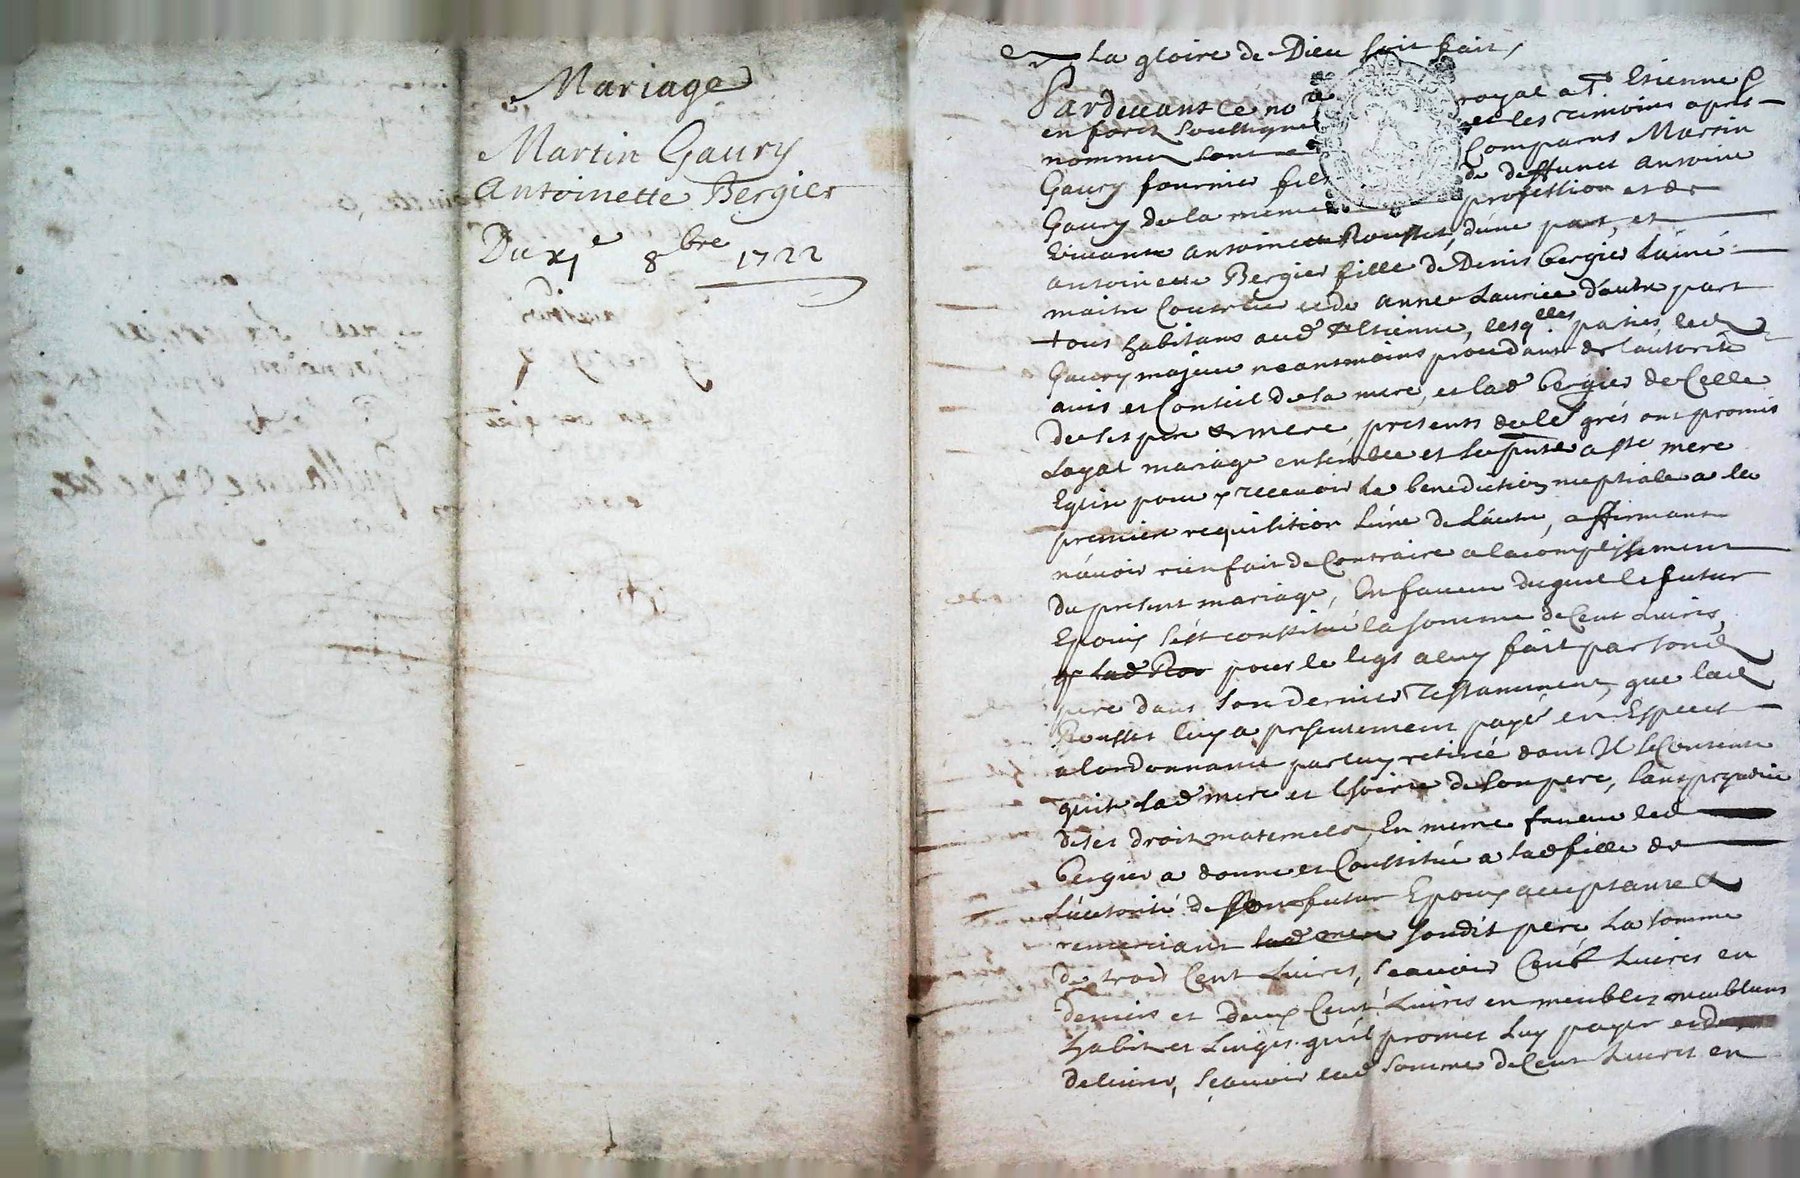 Mariage
Martin Gaury
Antoinette Bergier
Du xj e 8bre 1722
La gloire de Dieu soit fait,
Pardevant le no re royal a St. Etienne
en forez soussigné et les temoins apres
nommez sont comparus Martin
Gaury fils de deffunct Antoine
Gaury de la meme profession et de
vivante antoinette Rousset, dune part, et
antoinette Bergier fille de Denis bergier Lainé
maitre et de anne Laurice d'autre part
tous habitans aud St Etienne, lesqlles parties led
Gaury majeur neantmoins procedant de l'autorité
avis et Conseil de sa mere, et lad bergier de Celle
de ses pere et mere presents de le grés ont promis
Loyal mariage ensemble et se a ste mere
Eglise pour y recevoir la benediction nuptiale a la
premiere requisition L'une de L'autre, affirmant
n'avoir rien fait de Contraire a lacomplissement
du present mariage, En faveur duquel le futur
Epoux s'est constitué la somme de Cent Livres,
pour le legs a luy fait par sond
pere dans son dernier Testament, que lad
Rousset luy a presentement payé en Especes
a lordonnance par luy retirée dont Il se Contente
quite lad mere et hoirie de son pere, sans prejudice
de ses droits maternels, En meme faveur led
bergier a donné et Constitué a lad fille de
L'autorité de son futur Epoux acceptante &
remerciant lad mere sondit pere La somme
de trois Cent Livres, scavoir Cent Livres en
deniers et deux Cent Livres en meubles meublans
habits et Linges qu'il promet Luy payer et
delivrer, scavoir lad somme de Cent Livres en